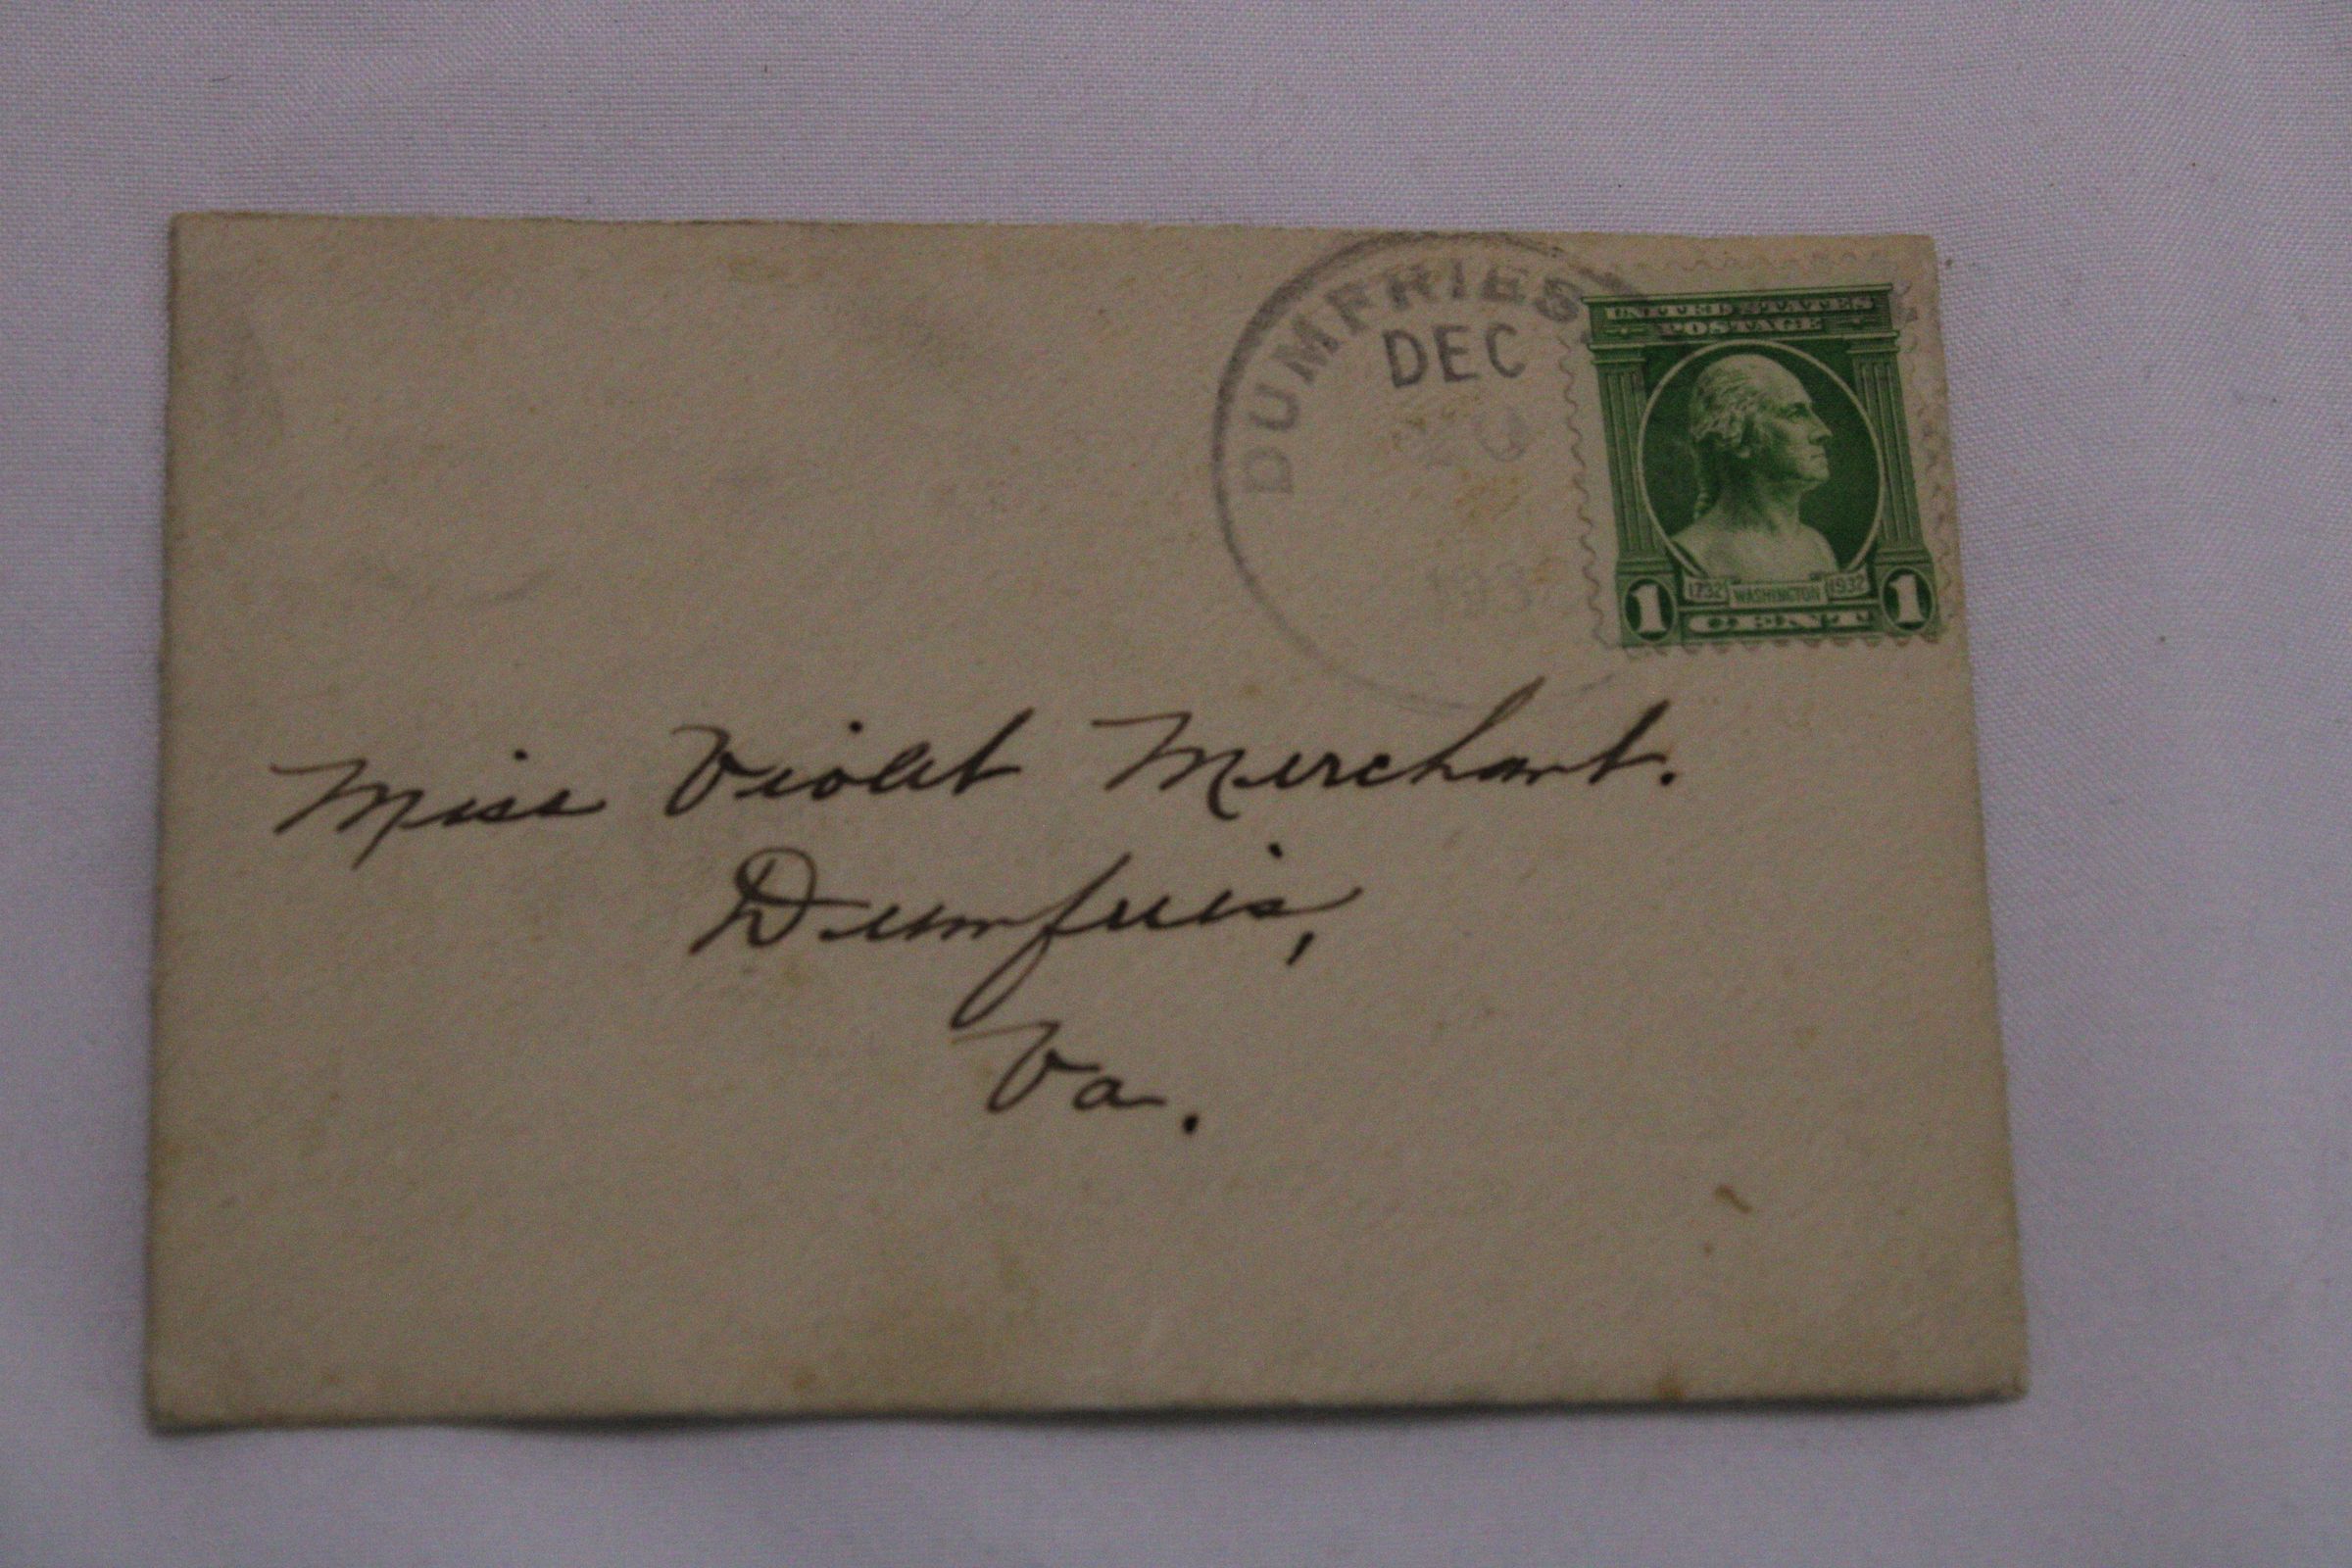 DUMFRIES,
DEC
20
UNITED STATES
POSTAGE
1732 WASHINGTON 1932
1 CENT 1
Miss Violet Merchant.
Dumfries,
Va.